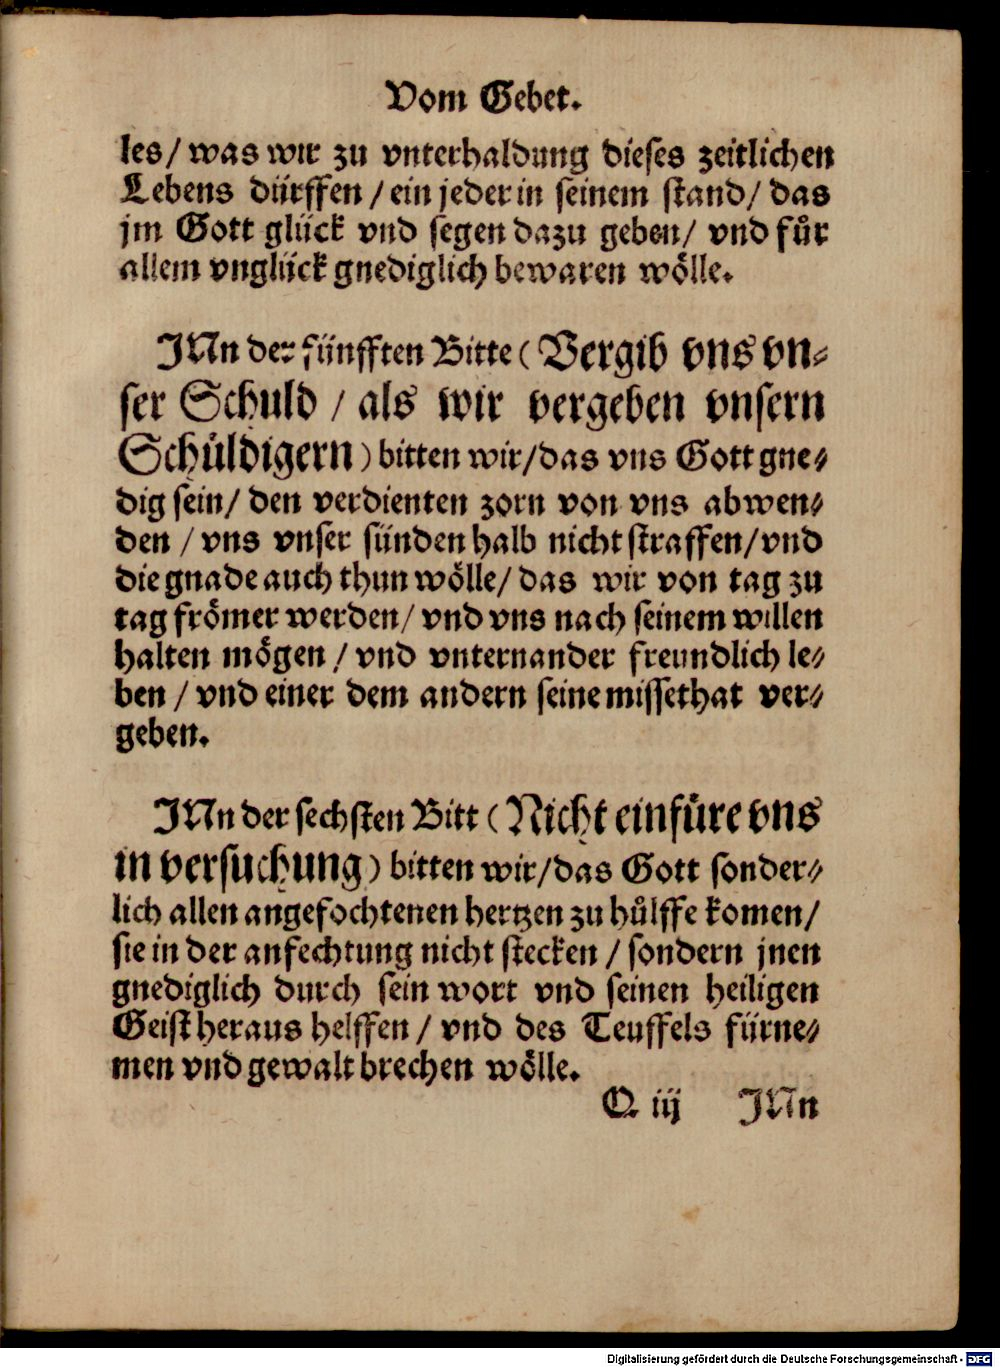 Vom Gebet.
les/ was wir zu vnterhaldung dieses zeitlichen
Lebens dürffen / ein jeder in seinem stand/ das
jm Gott glück vnd segen dazu geben/ vnd fůr
allem vnglück gnediglich bewaren wölle.
JNn der fünfften Bitte (Vergib vns vn⸗
ser Schuld / als wir vergeben vnsern
Schůldigern) bitten wir/das vns Gott gne⸗
dig sein/ den verdienten zorn von vns abwen⸗
den / vns vnser sünden halb nicht straffen/vnd
die gnade auch thun wölle/ das wir von tag zu
tag frömer werden/ vnd vns nach seinem willen
halten mögen / vnd vnternander freundlich le⸗
ben / vnd einer dem andern seine missethat ver⸗
geben.
JNn der sechsten Bitt (Nicht einfůre vns
in versuchung) bitten wir/das Gott sonder⸗
lich allen angefochtenen hertzen zu hůlffe komen/
sie in der anfechtung nicht stecken / sondern jnen
gnediglich durch sein wort vnd seinen heiligen
Geist heraus helffen / vnd des Teuffels fürne⸗
men vnd gewalt brechen wölle.
Q iij JNn
Digitalisierung gefördert durch die Deutsche Forschungsgemeinschaft - DFG